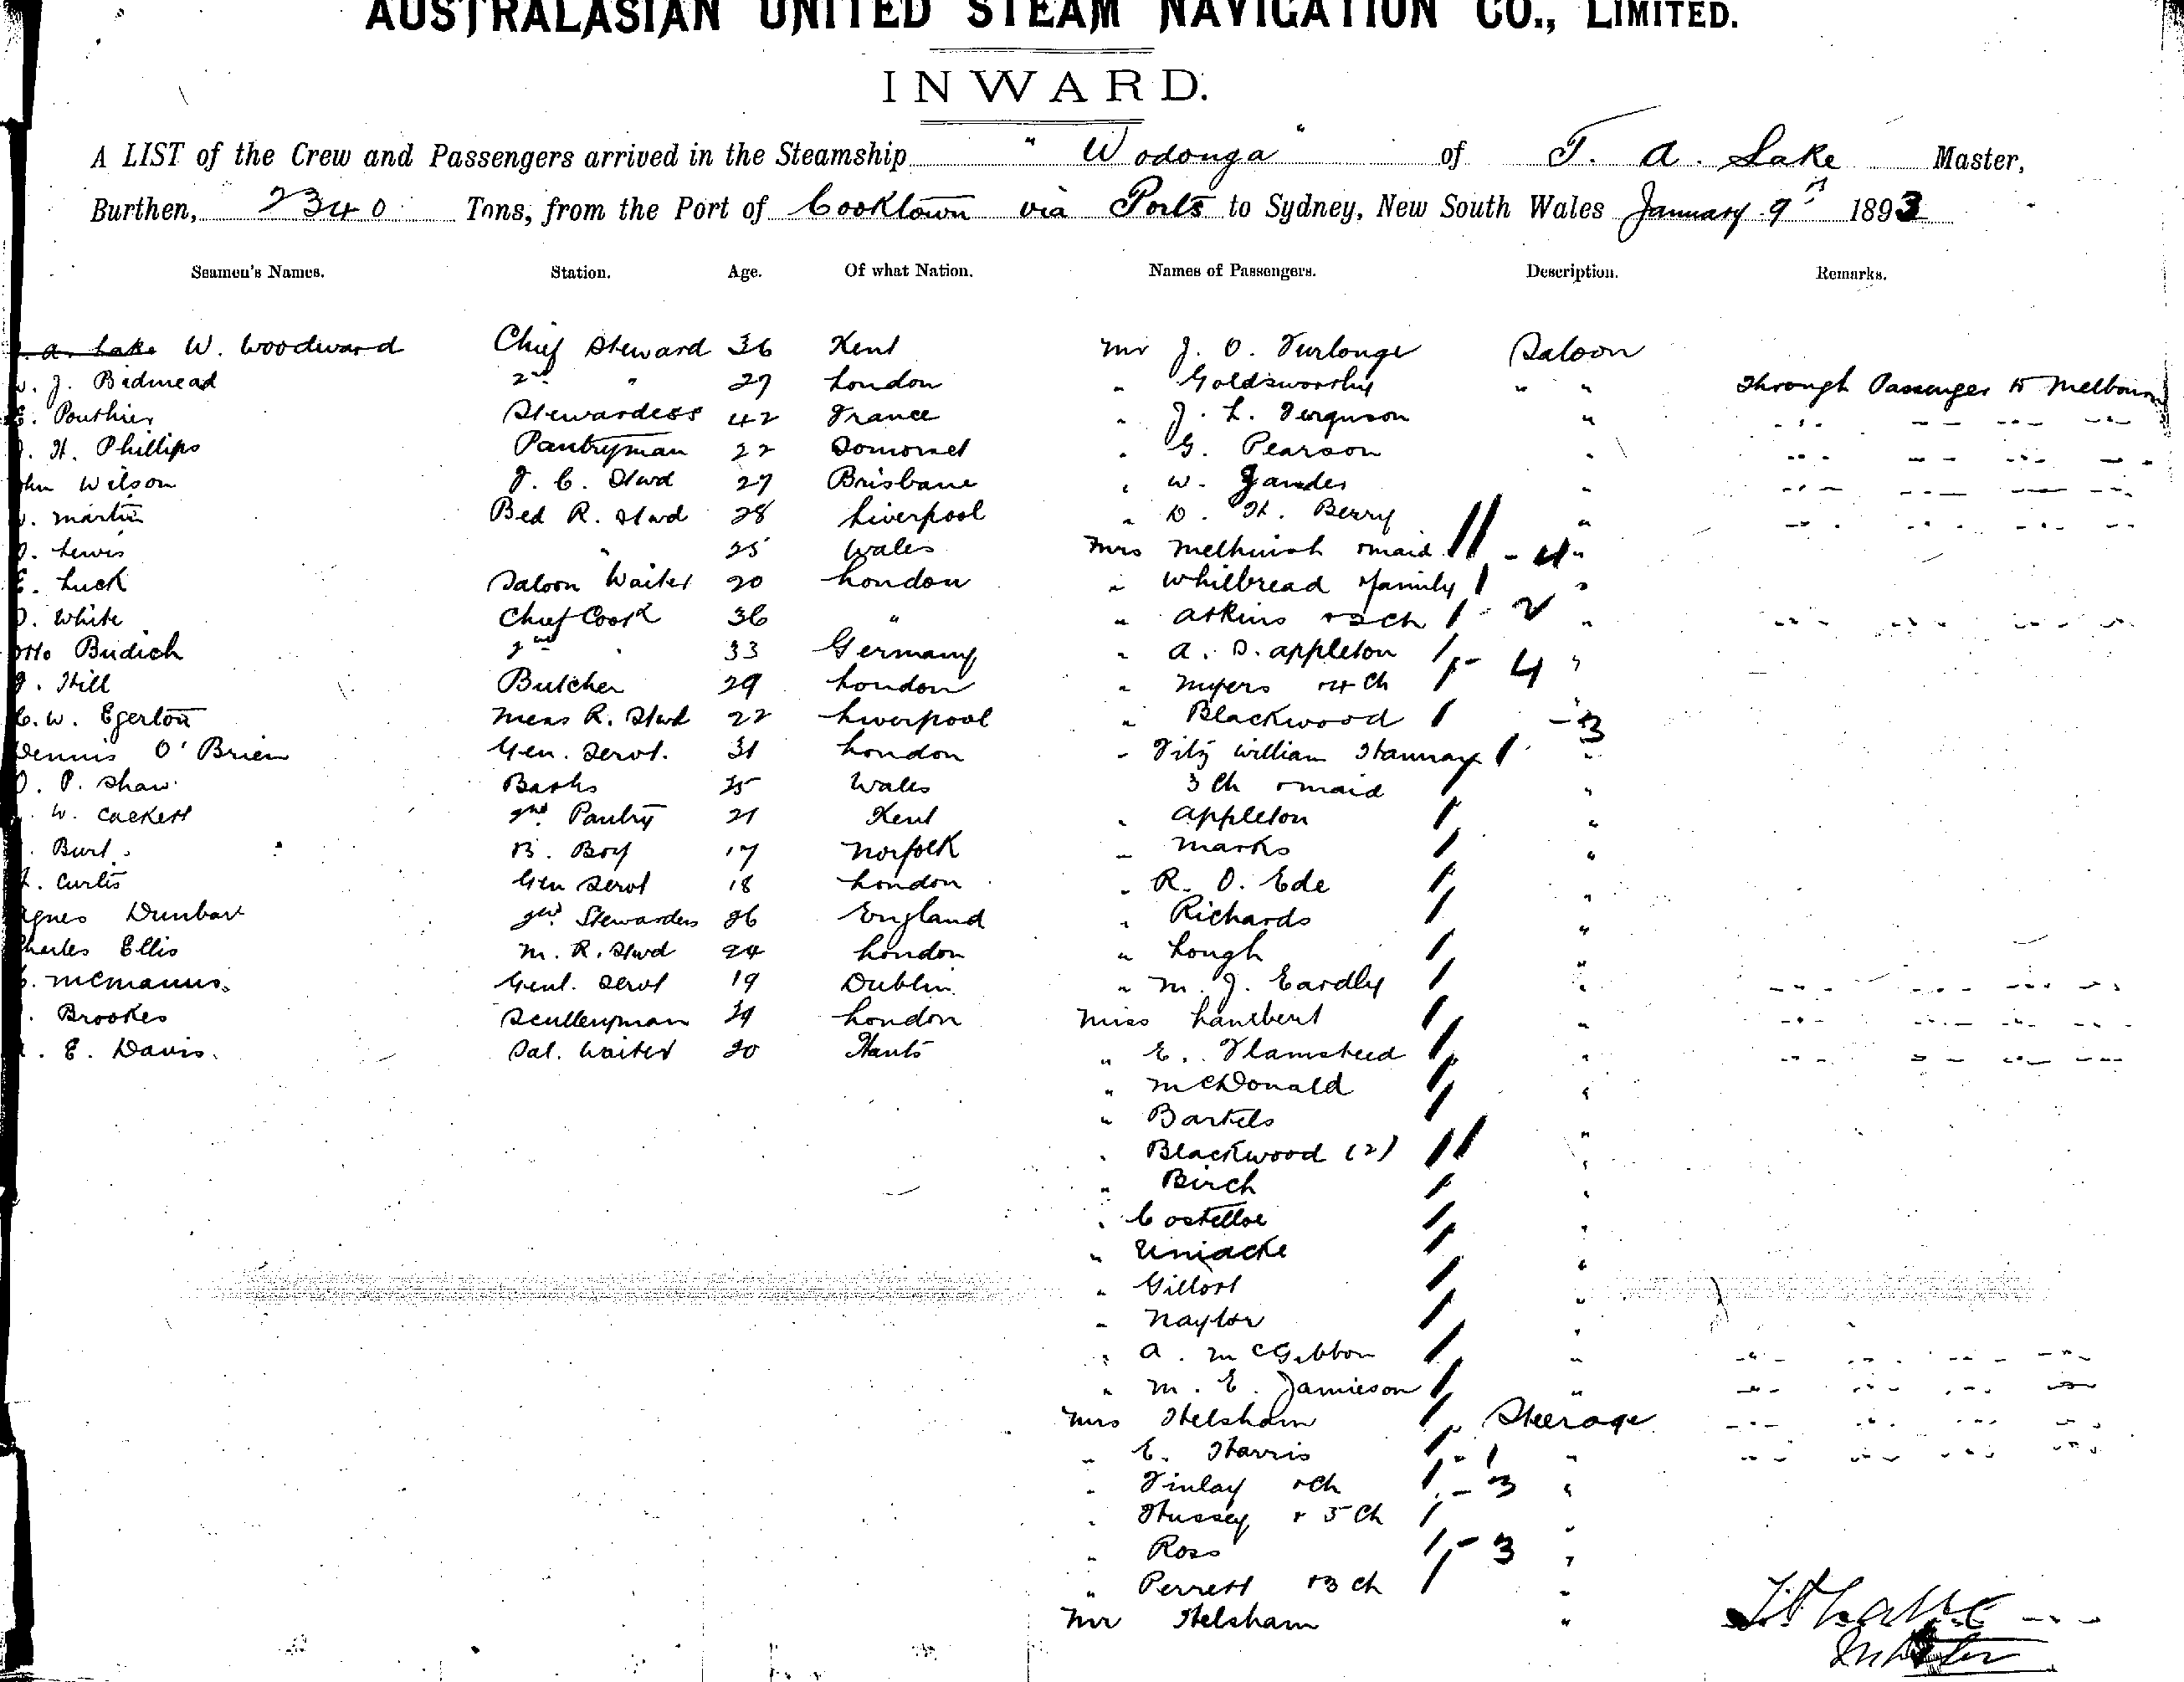 AUSTRALASIAN UNITED STEAM NAVIGATION CO., LIMITED.
INWARD.
A LIST of the Crew and Passengers arrived in the Steamship "Wodonga" of T. A. Lake Master,
Burthen, 2340 Tons, from the Port of Cooktown via Ports to Sydney, New South Wales January 9th 1893
Seamen's Names. Station. Age. Of what Nation. Names of Passengers. Description. Remarks.
. A. Lake W. Woodward Chief Steward 36 Kent Mr J. O. Furlonge Saloon
. J. Bidmead 2nd " 27 London " Goldsworthy " " Through Passenger to Melbourn
E. Pouthier Stewardess 42 France " J. L. Ferguson "
. H. Phillips Pantryman 22 Somerset " G. Pearson "
ohn Wilson F. C. Stwd 27 Brisbane " W. Zander "
. Martin Bed R. Stwd 28 Liverpool " D. H. Berry "
. Lewis " 25 Wales Mrs Melhuish & maid - 4 "
E. Luck Saloon Waiter 20 London " Whitbread & family "
. White Chief Cook 36 " " Atkins & 2 ch - 2 "
Otto Budich 2nd " 33 Germany " A. D. Appleton "
. Hill Butcher 29 London " Myers & 4 ch - 4 "
C. W. Egerton Mess R. Stwd 22 Liverpool " Blackwood - 3
Dennis O'Brien Gen. Servt. 31 London " Fitz William "
. P. Shaw Baths 25 Wales 3 Ch & maid "
. W. Cackett 2nd Pantry 21 Kent " Appleton "
. Burt B. Boy 17 Norfolk " Marks "
. Curtis Gen Servt 18 London " R. O. Ede "
Agnes Dunbar 2nd Stewardess 26 England " Richards "
Charles Ellis M. R. Stwd 24 London " Lough "
. McManus Genl. Servt 19 Dublin " M. J. Eardly "
. Brookes Sculleryman 29 London Miss Lambert "
. E. Davis Sal. Waiter 20 Hants " E. Flamsteed "
" McDonald "
" Bartels
" Blackwood (2) "
" Birch "
" Costelloe "
" Uniacke "
" Naylor "
" A. McGibbon "
" M. E. Jamieson "
Mrs Helsham Steerage
" E. Harris - 1 "
" Finlay & Ch - 3 "
" Hussey & 5 Ch "
" Ross - 3 "
" Perrett & 3 ch "
Mr Helsham "
Master